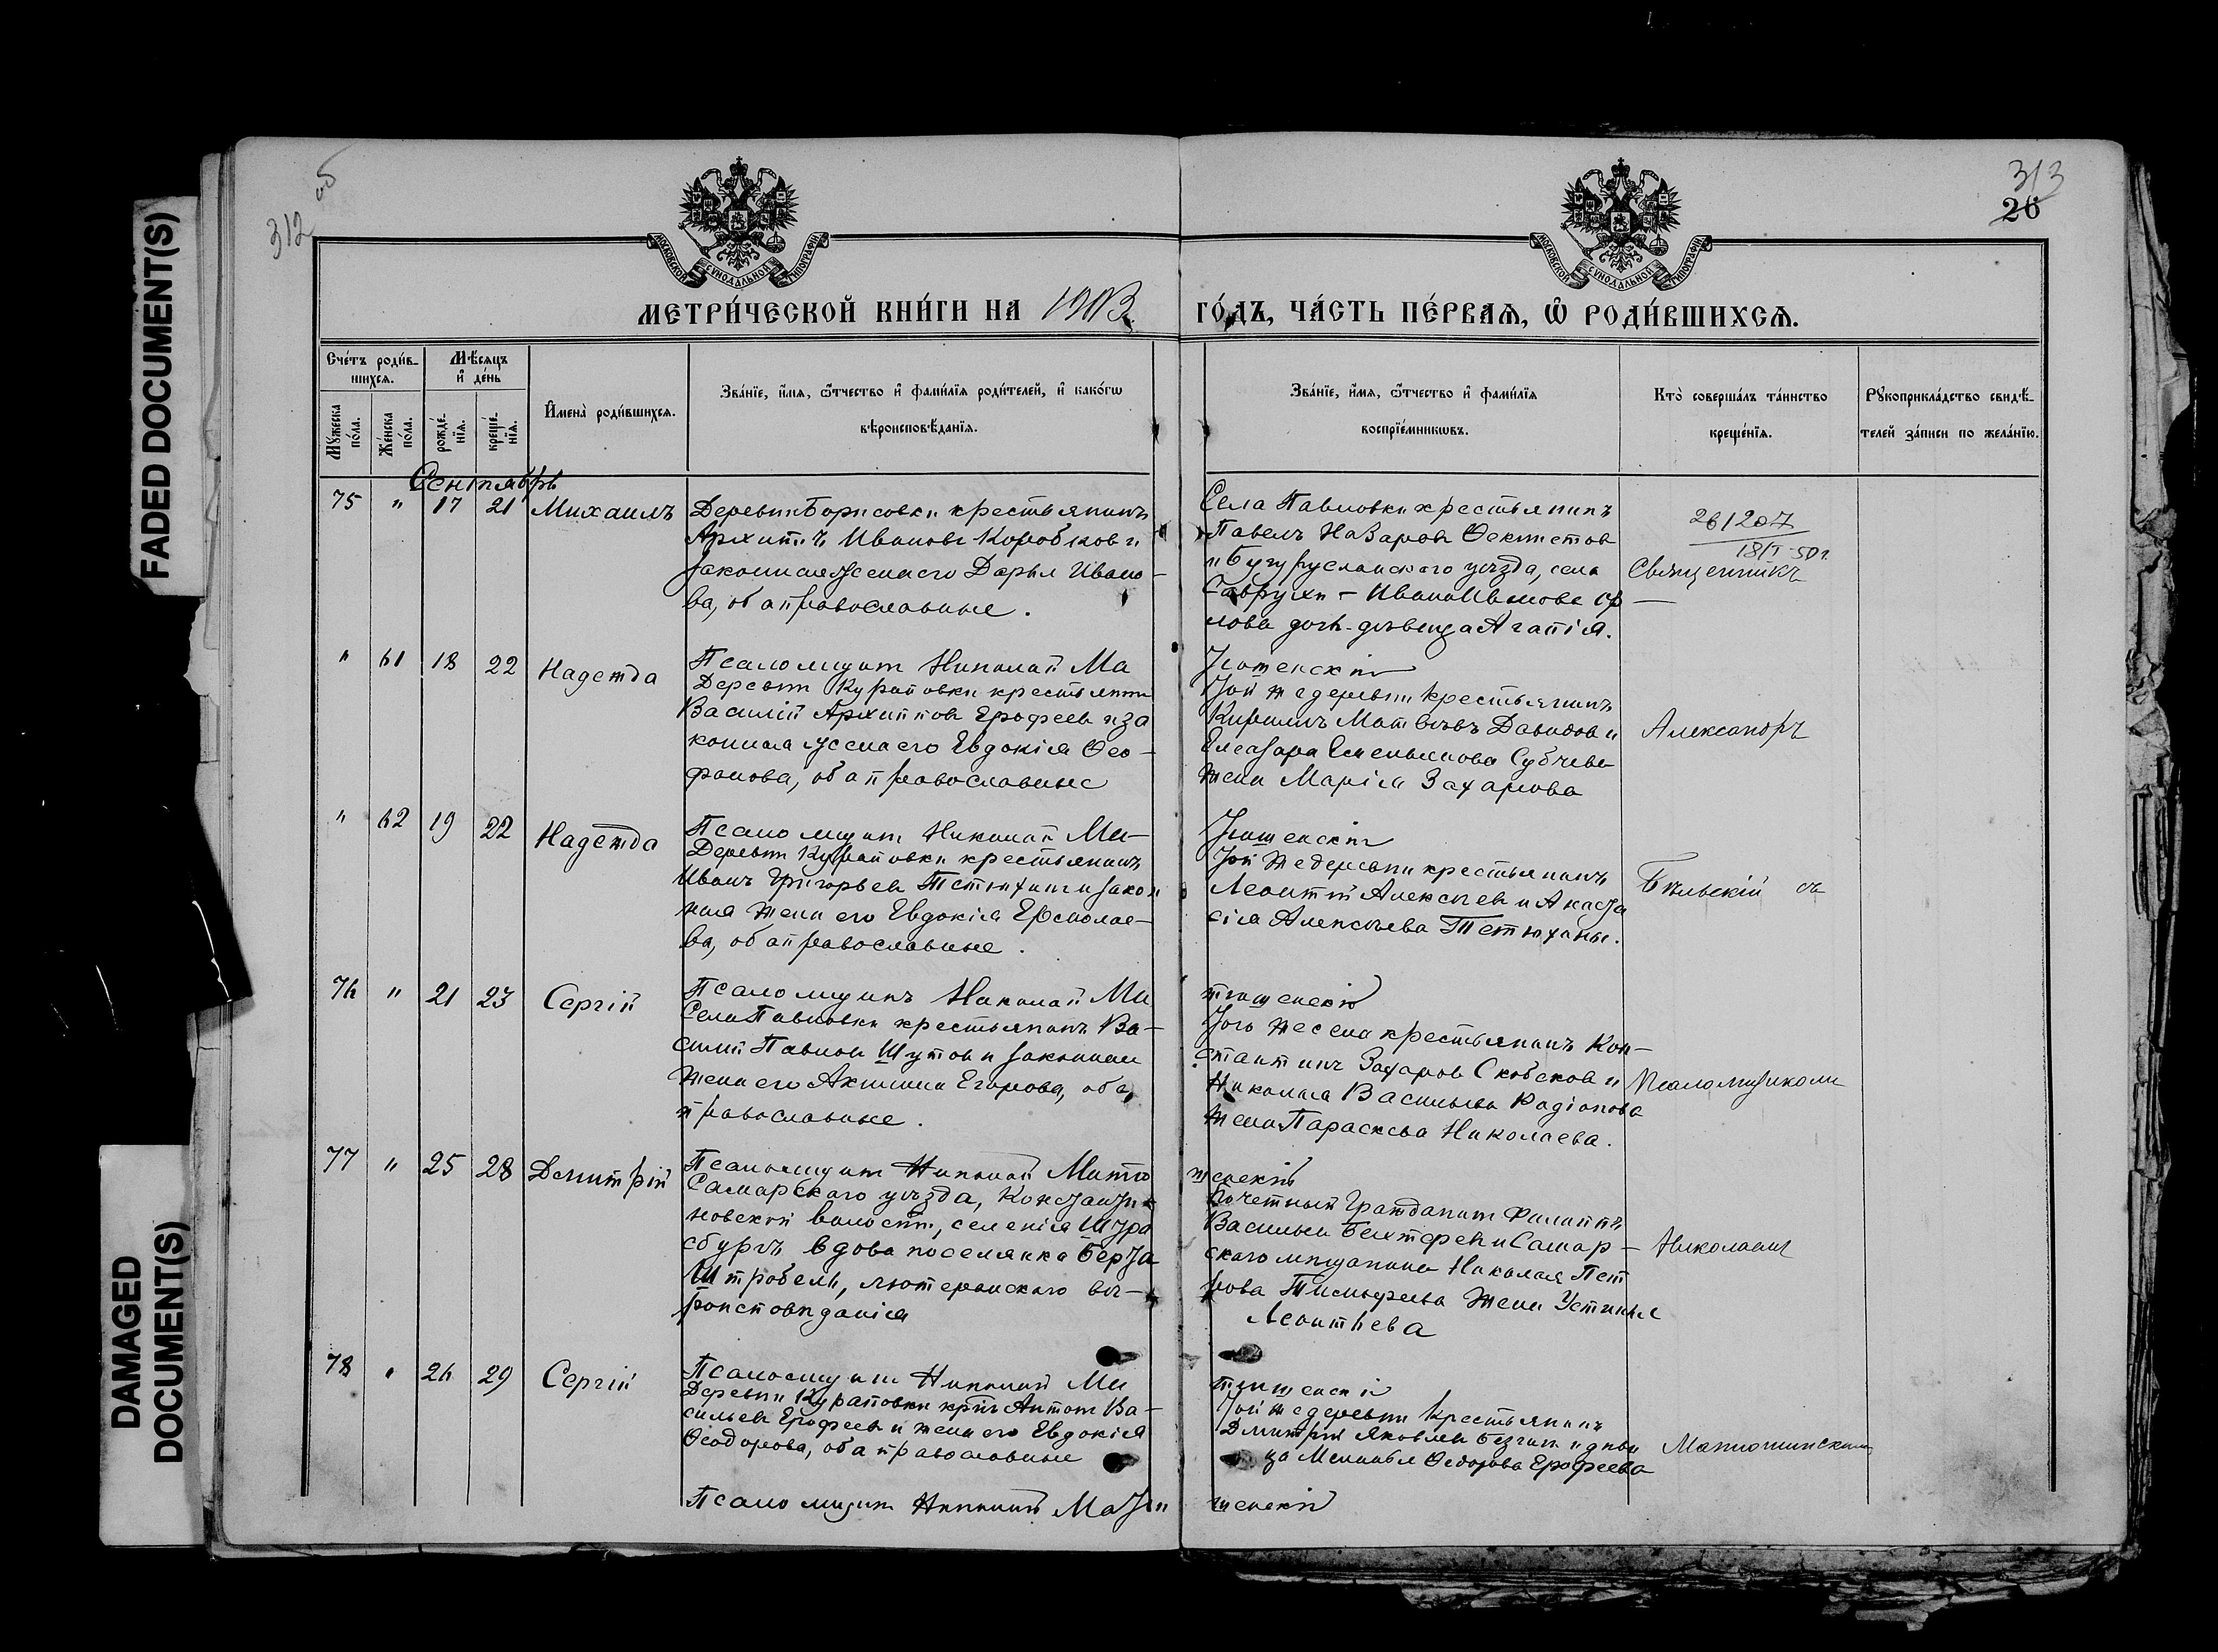 FADED DOCUMENT(S)
DAMAGED
DOCUMENT(S)
312 об
313
26
МОСКОВСКОЙ СУНОДАЛЬНОЙ ТИПОГРАФІИ
МОСКОВСКОЙ СУНОДАЛЬНОЙ ТИПОГРАФІИ
МЕТРИ́ЧЕСКОЙ КНИ́ГИ НА 1913
ГО́ДЪ, ЧА́СТЬ ПЕ́РВАѦ, Ѡ҆ РОДИ́ВШИХСѦ.
Сче́тъ роди́в-
шихсѧ.
Мꙋжеска
по́ла.
Же́нска
по́ла.
Мѣ́сѧцъ
и҆ де́нь
рожде́-
нїѧ.
креще́-
нїѧ.
И҆мена̀ роди́вшихсѧ.
Зва́нїе, и҆́мѧ, ѻ҆́тчество и҆ фами́лїѧ роди́телей, и҆ како́гѡ
вѣроисповѣ́данїѧ.
Зва́нїе, и҆́мѧ, ѻ҆́тчество и҆ фами́лїѧ
воспрїе́мникѡвъ.
Кто̀ соверша́лъ та́инство
креще́нїѧ.
Рꙋкоприкла́дство свидѣ́-
телей за́писи по жела́нїю.
Сентябрь
75 " 17 21 Михаилъ
Деревни Борисовки крестьянинъ
Архипъ Ивановъ Коробковъ и
законная жена его Дарья Ивано-
ва, оба православные.
Села Павловки крестьянинъ
Павелъ Назаровъ Феоктистов
и Бугурусланскаго уѣзда, села
Саврухи - Ивана Иванова Ор
лова дочь-дѣвица Агапія.
26/207
18/I-50 г.
Священникъ
Псаломщикъ Николай Ма
тюшенскій
" 61 18 22 Надежда
Деревни Куратовки крестьянинъ
Василій Архиповъ Ерофеев и за
конная жена его Евдокія Фео-
фанова, оба православные
Той же деревни крестьянинъ
Кириллъ Матвѣевъ Давидовъ и
Елеазара Емельянова Субчева
жена Марія Захарова
Александръ
Псаломщикъ Николай Ма-
тюшенскій
" 62 19 22 Надежда
Деревни Куратовки крестьянинъ
Иванъ Григорьев Тетюхинъ и закон
ная жена его Евдокія Ермолае-
ва, оба православные.
Той же деревни крестьянинъ
Леонтій Алексѣев и Анаста
сія Алексѣева Тетюхины.
Бѣльскій съ
Псаломщикъ Николай Ма
тюшенскій
76 " 21 23 Сергій
Села Павловки крестьянинъ Ва-
силій Павлов Шутов и законная
жена его Акилина Егорова, оба
православные.
Того же села крестьянинъ Кон-
стантинъ Захаров Скобсков и
Николая Васильева Радіонова
жена Параскева Николаева.
Псаломщикомъ
Псаломщикъ Николай Матю
шенскій
77 " 25 28 Димитрій
Самарскаго уѣзда, Константи-
новской волости, селенія Штра
сбургъ вдова поселянка Берта
Штробель, лютеранскаго вѣ-
роисповѣданія
Почетный Гражданинъ Филиппъ
Васильев Бехтерев и Самар-
скаго мѣщанина Николая Пет
рова Тимофеева жена Устинья
Леонтьева
Николаемъ
Псаломщикъ Николай Ма
тюшенскій
78 " 26 29 Сергій
Деревни Куратовки кр-нъ Антонъ Ва-
сильев Ерофеев и жена его Евдокія
Феодорова, оба православные
Той же деревни крестьянинъ
Дмитрій Яковлев и дѣви
ца Меланья Федорова Ерофеева
Матюшинскимъ
Псаломщикъ Николай Матю
шенскій